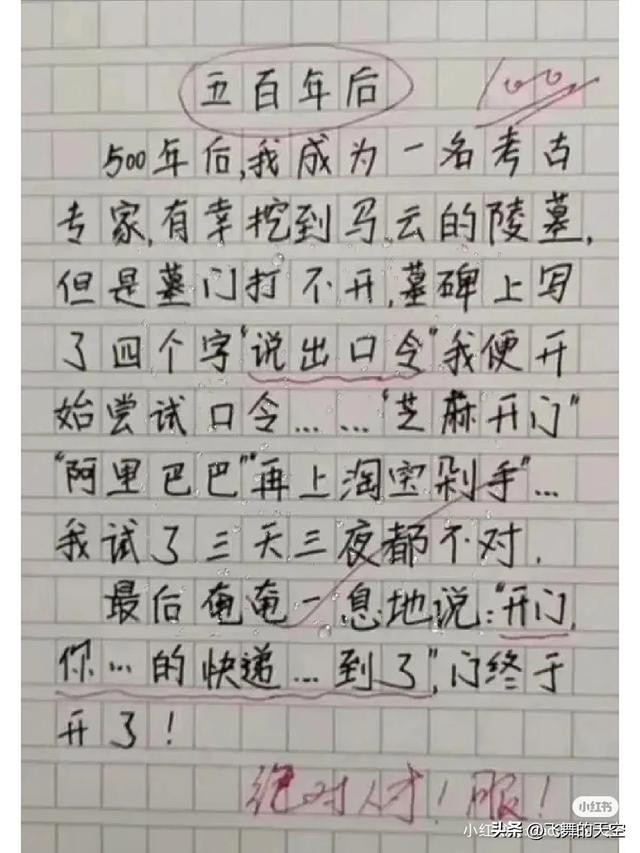 五百年后
100
500年后,我成为一名考古
专家,有幸挖到马云的陵墓,
但是墓门打不开,墓碑上写
了四个字"说出口令"我便开
始尝试口令……"芝麻开门"
"阿里巴巴""再上淘宝剁手"…
我试了三天三夜都不对.
最后奄奄一息地说:"开门,
你…的快递…到了",门终于
开了!
绝对人才!服!
小红书
头条 @飞舞的天空